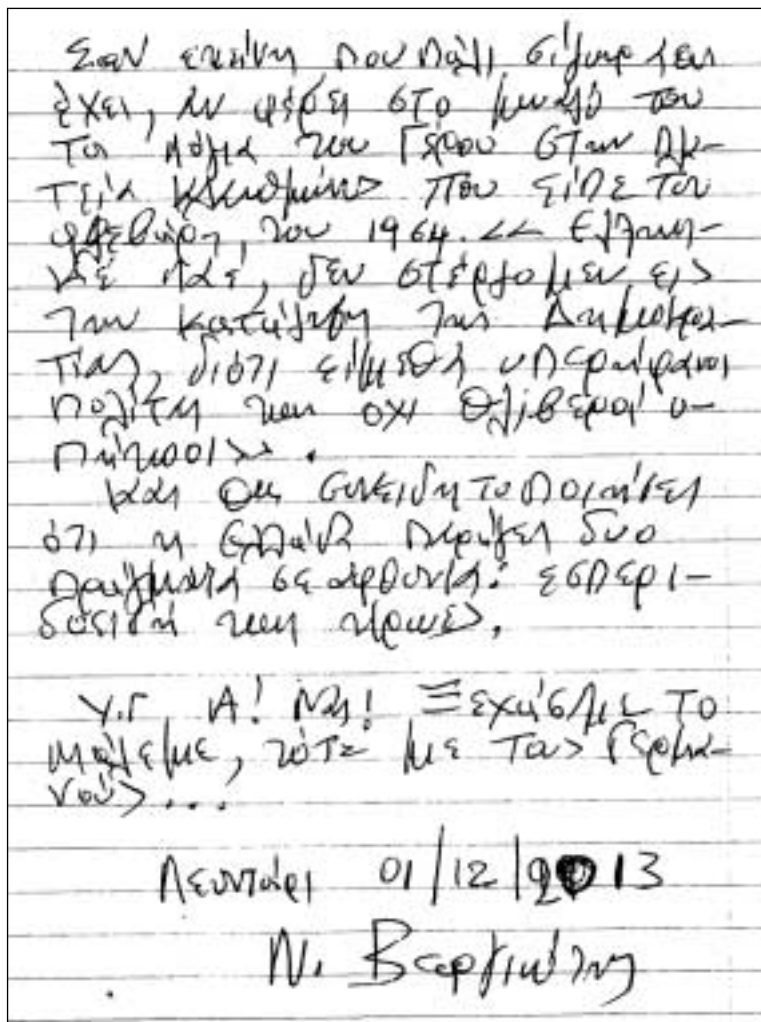 Σαν εκείνη που πάλι σίγουρα δεν
έχει, αν φέρει στο μυαλό του
Τα λόγια του Γέρου στην Πλα-
τεία Κλαυθμώνος που είπε τον
Φλεβάρη, του 1964. << Έλλην-
δεν στέργομεν εις
την κατάλυση της Δημοκρα-
τίας, διότι είμεθα υπερήφανοι
πολίτες και όχι θλιβεροί υ-
πήκοοι>>.
Και θα συνειδητοποιήσει
ότι η Ελλάδα παράγει δυο
πράγματα σε αφθονία: εσπερι-
δοειδή και ήρωες.
Υ.Γ Α! Ναι! Ξεχάσαμε το
Μάλεμε, τότε με τους Γερμα-
νούς...
Λευντάρι 01/12/2013
Ν. Βεργιώτης